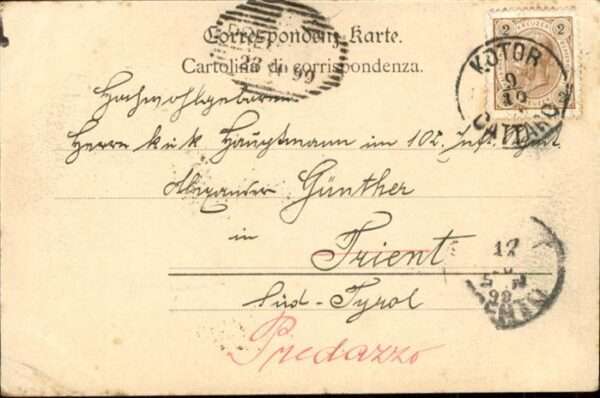 Correspondenz-Karte.
Cartolina di corrispondenza.
2 2
KOTOR
9
12
CATTARO
23 99
Hochwohlgeboren
Herrn k u k Hauptmann im 102. Inf.
Alexander Günther
in
Trient
Süd-Tyrol
Predazzo
12
98